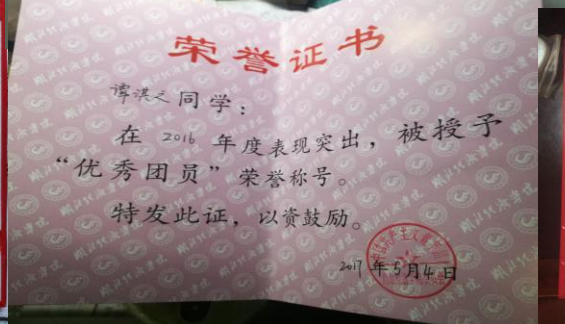 荣誉证书
谭淇之同学：
在2016年度表现突出，被授予
“优秀团员”荣誉称号。
特发此证，以资鼓励。
2017年5月4日